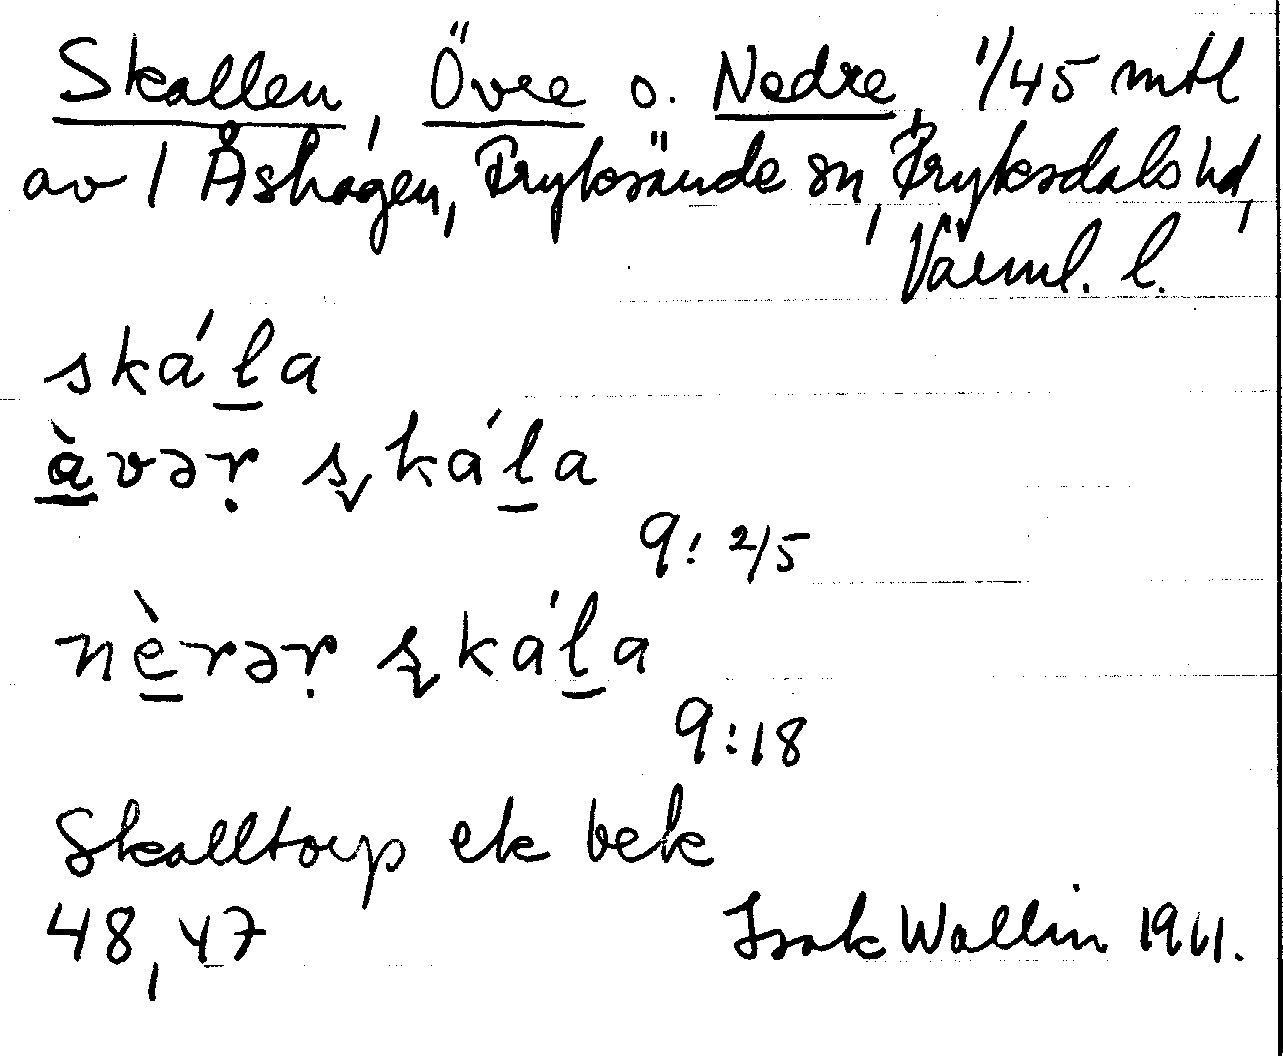 Skallen, Övre o. Nedre, 1/45 mtl
av 1 Åshagen, Fryksände sn, Fryksdals hd,
Värml. l.
ská´l̠a
à̠vər̩ s̬ká´l̠a
9: 2/5
nè̠rər̩ s̬ká´l̠a
9:18
Skalltorp ek bek
48, 47
Isak Wallin 1911.